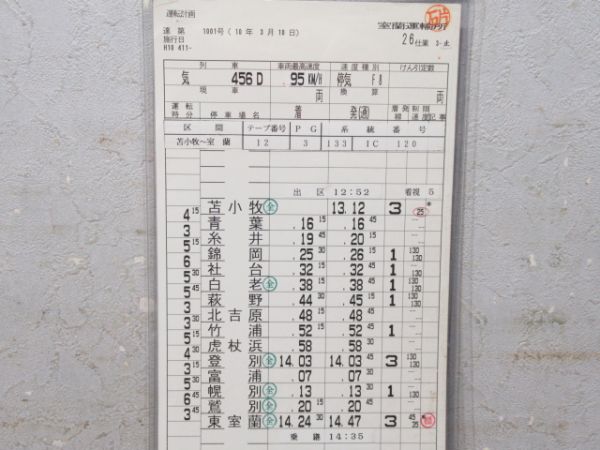 運転計画
達第 1001号(10年 3月10日)
施行日
H10 411-
室蘭運輸所
26仕業 3-土
列車 車両最高速度 速度種別 けん引定数
気 456D 95KM/H 停気 F8 両
現車 両 換算
運転時分 停車場名 着 発(通) 着発線 制限速度 記事
区間 テープ番号 PG 系統 番号
苫小牧~室蘭 12 3 133 1C 120
出区 12:52 着視 5
苫小牧 全 13.12 3 25
4 15 青葉 .16 15 .16 45
3 糸井 .19 45 .20 15
5 15 錦岡 .25 30 .26 15 1 130 130
6 社台 .32 15 .32 45 1 130 130
5 30 白老 全 .38 15 .38 45 1 130 130
5 15 萩野 .44 30 .45 15 1 130 130
3 北吉原 .48 15 .48 45
3 30 竹浦 .52 15 .52 45 1
5 虎杖浜 .58 .58 30
4 30 登別 全 14.03 14.03 45 3 130
3 15 富浦 .07 .07 30
5 幌別 全 .13 .13 30 1
6 45 鷲別 全 .20 15 .20 45
3 東室蘭 全 14.24 30 14.47 3 45 25
乗継 14:35